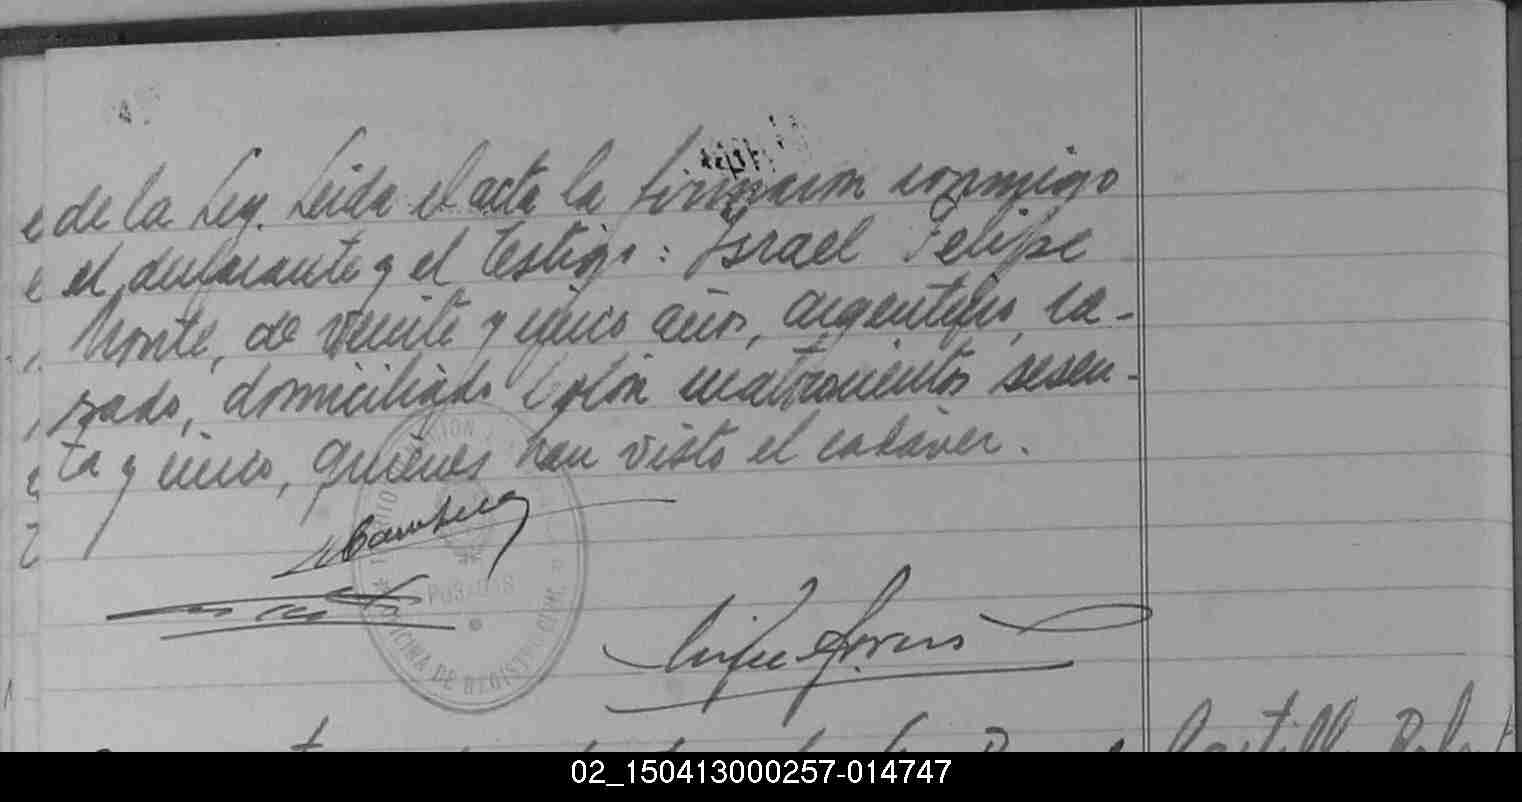 de la Ley. Leida el acta la firmaron conmigo
el declarante y el testigo: Israel Felipe
Monte, de veinte y cinco años, argentino, ca-
sado, domiciliado Colón cuatrocientos sesen-
ta y cinco, quienes han visto el cadáver.
POSADAS
OFICINA DE REGISTRO CIVIL
02_150413000257-014747